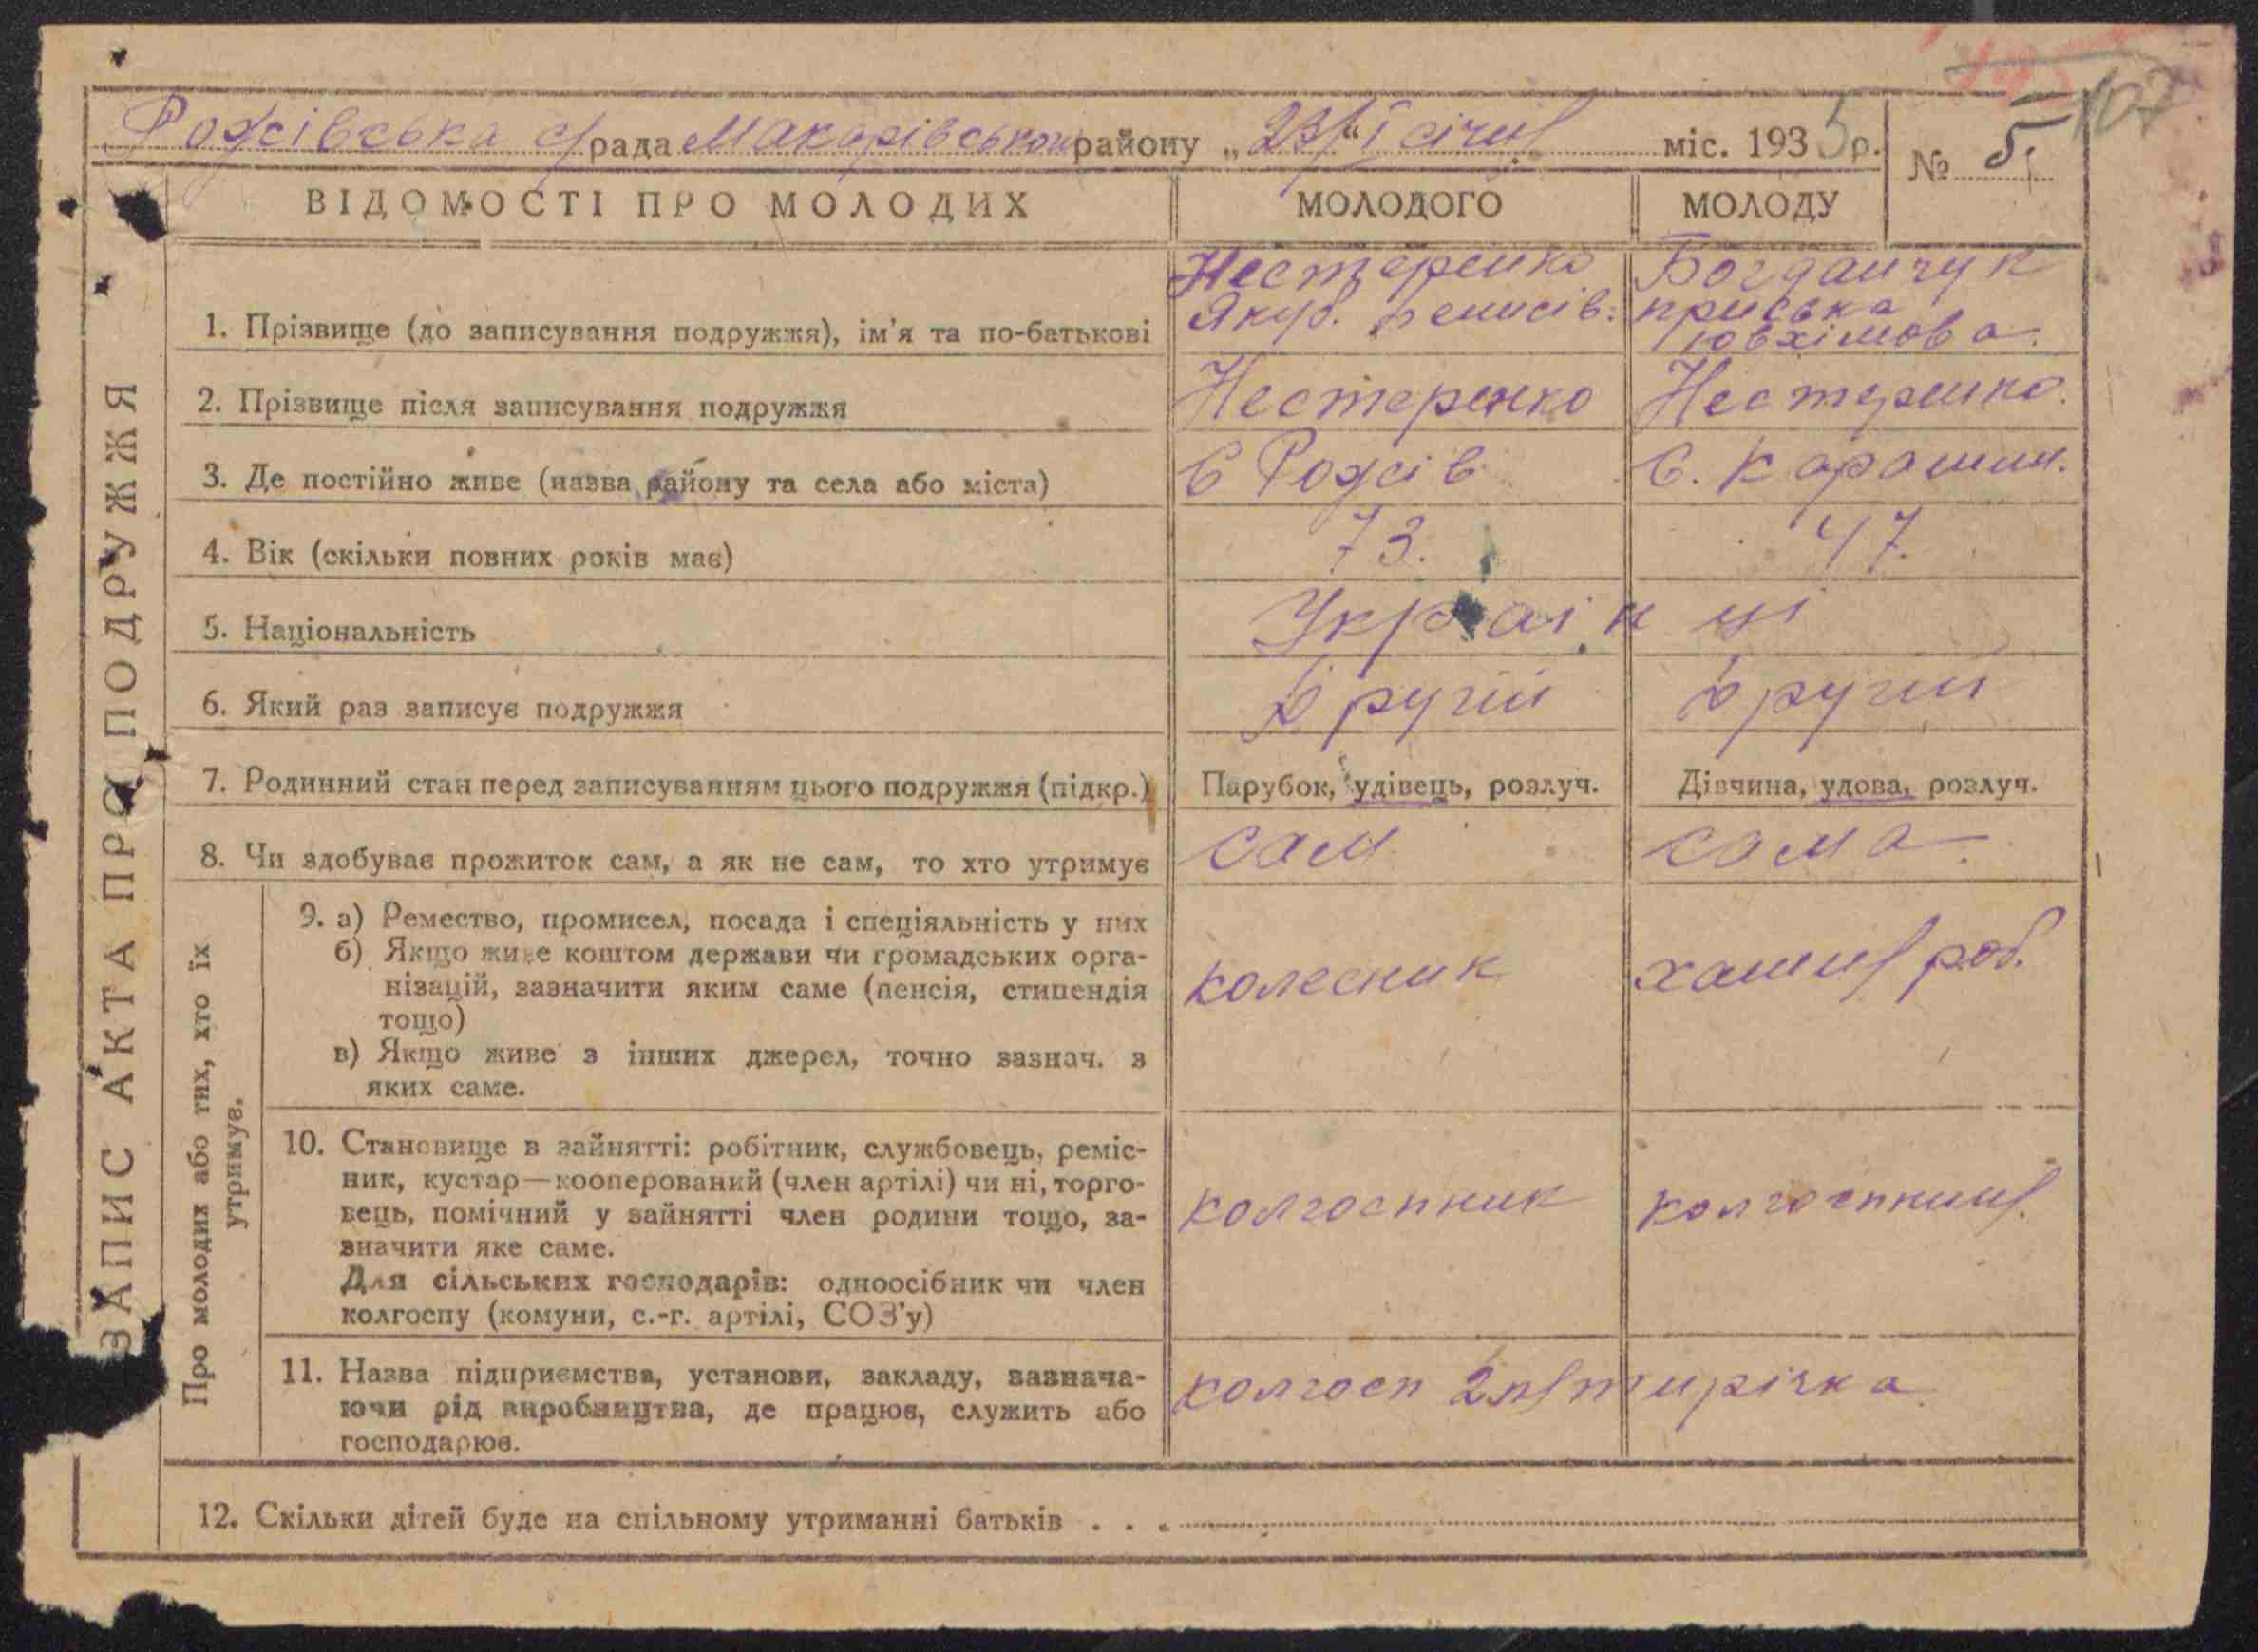 107
Рожівська с/рада Макарівського району „23/I“ січня міс. 1935 р. № 5.
ВІДОМОСТІ ПРО МОЛОДИХ МОЛОДОГО МОЛОДУ
ЗАПИС АКТА ПРО ПОДРУЖЖЯ
1. Прізвище (до записування подружжя), ім'я та по-батькові
Нестеренко
Якув. Денисів:
Богданчук
приська
Ювхімова.
2. Прізвище після записування подружжя Нестеренко Нестеренко.
3. Де постійно живе (назва району та села або міста) С Рожів С. Карашин.
4. Вік (скільки повних років має) 73. 47.
5. Національність Українці
6. Який раз записує подружжя Другий Другий
7. Родинний стан перед записуванням цього подружжя (підкр.) Парубок, удівець, розлуч. Дівчина, удова, розлуч.
8. Чи здобуває прожиток сам, а як не сам, то хто утримує сам сама.
Про молодих або тих, хто їх
утримує.
9. а) Ремество, промисел, посада і спеціяльність у них
б) Якщо живе коштом держави чи громадських орга-
нізацій, зазначити яким саме (пенсія, стипендія
тощо)
в) Якщо живе з інших джерел, точно зазнач. з
яких саме.
колесник хашня роб.
10. Становище в зайнятті: робітник, службовець, реміс-
ник, кустар—кооперований (член артілі) чи ні, торго-
вець, помічний у зайнятті член родини тощо, за-
значити яке саме.
Для сільських господарів: одноосібник чи член
колгоспу (комуни, с.-г. артілі, СОЗ'у)
колгоспник колгоспниця.
11. Назва підприємства, установи, закладу, зазнача-
ючи рід виробництва, де працює, служить або
господарює.
колгосп 2 пятирічка
12. Скільки дітей буде на спільному утриманні батьків . . .